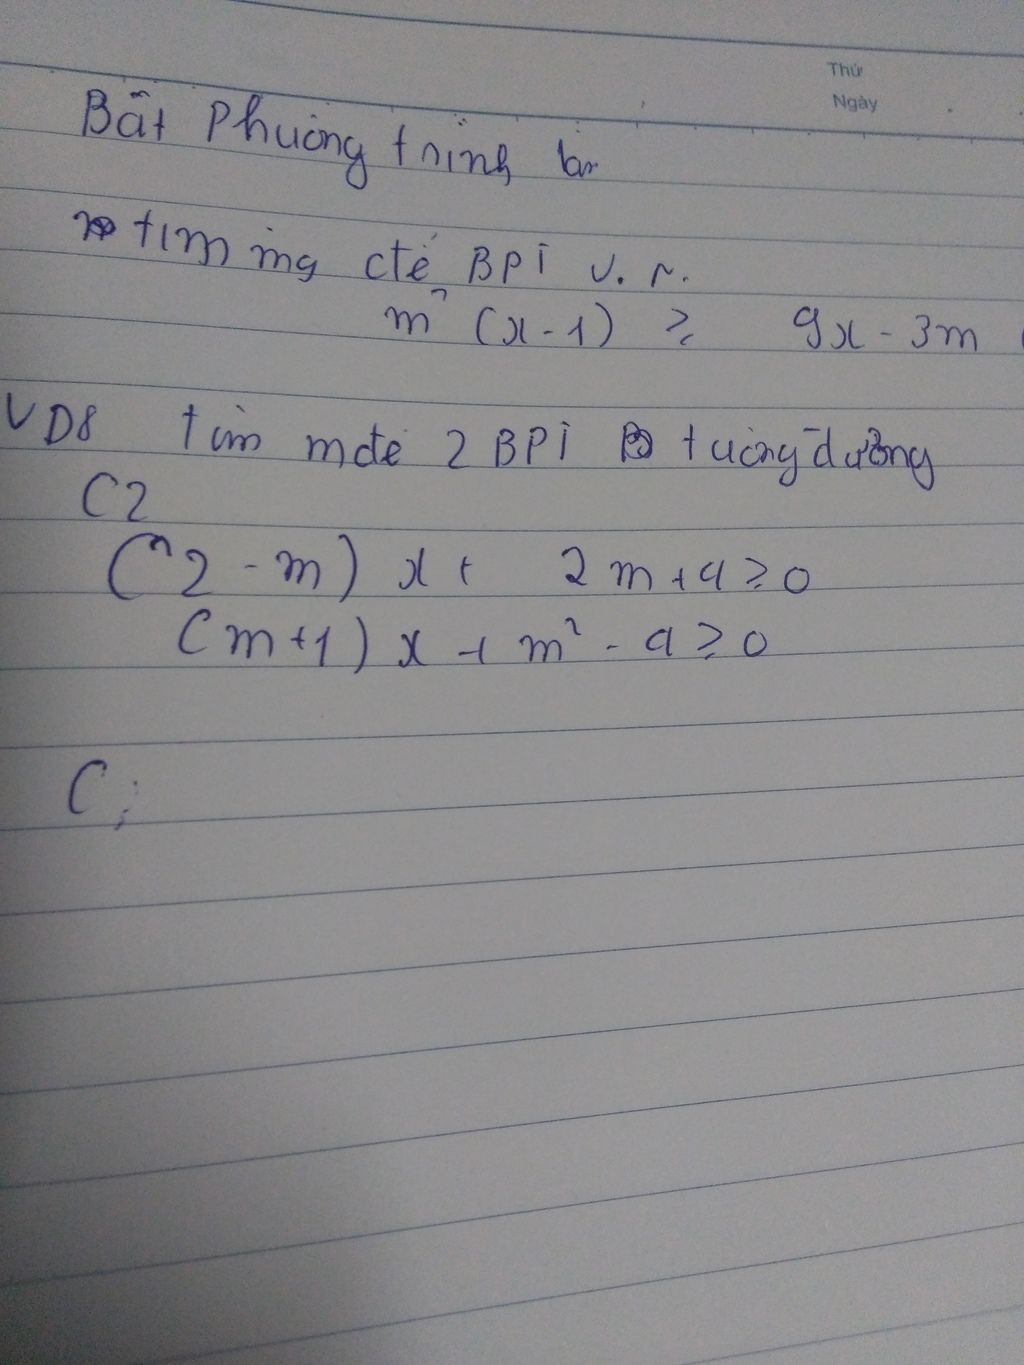 Thứ
Ngày
Bất Phương trình
tìm mg để BPT v.n.
m² (x-1) ≥ 9x - 3m
VD8 tìm m để 2 BPT tương đương
C2
(2 - m) x + 2m + 4 ≥ 0
(m+1) x + m² - 4 ≥ 0
C;